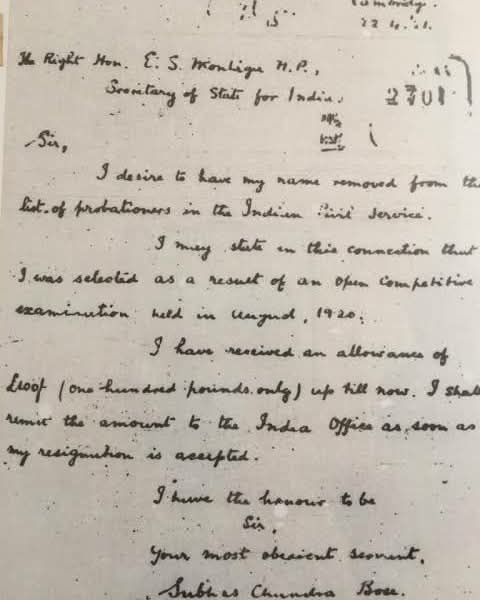 Cambridge.
22.4.21.
The Right Hon. E. S. Montague M.P.,
Secretary of State for India.
2701
Sir,
I desire to have my name removed from the
list of probationers in the Indian Civil Service.
I may state in this connection that
I was selected as a result of an open competitive
examination held in August, 1920.
I have received an allowance of
£100/- (one hundred pounds only) up till now. I shall
remit the amount to the India Office as soon as
my resignation is accepted.
I have the honour to be
Sir,
Your most obedient servant,
Subhas Chandra Bose.